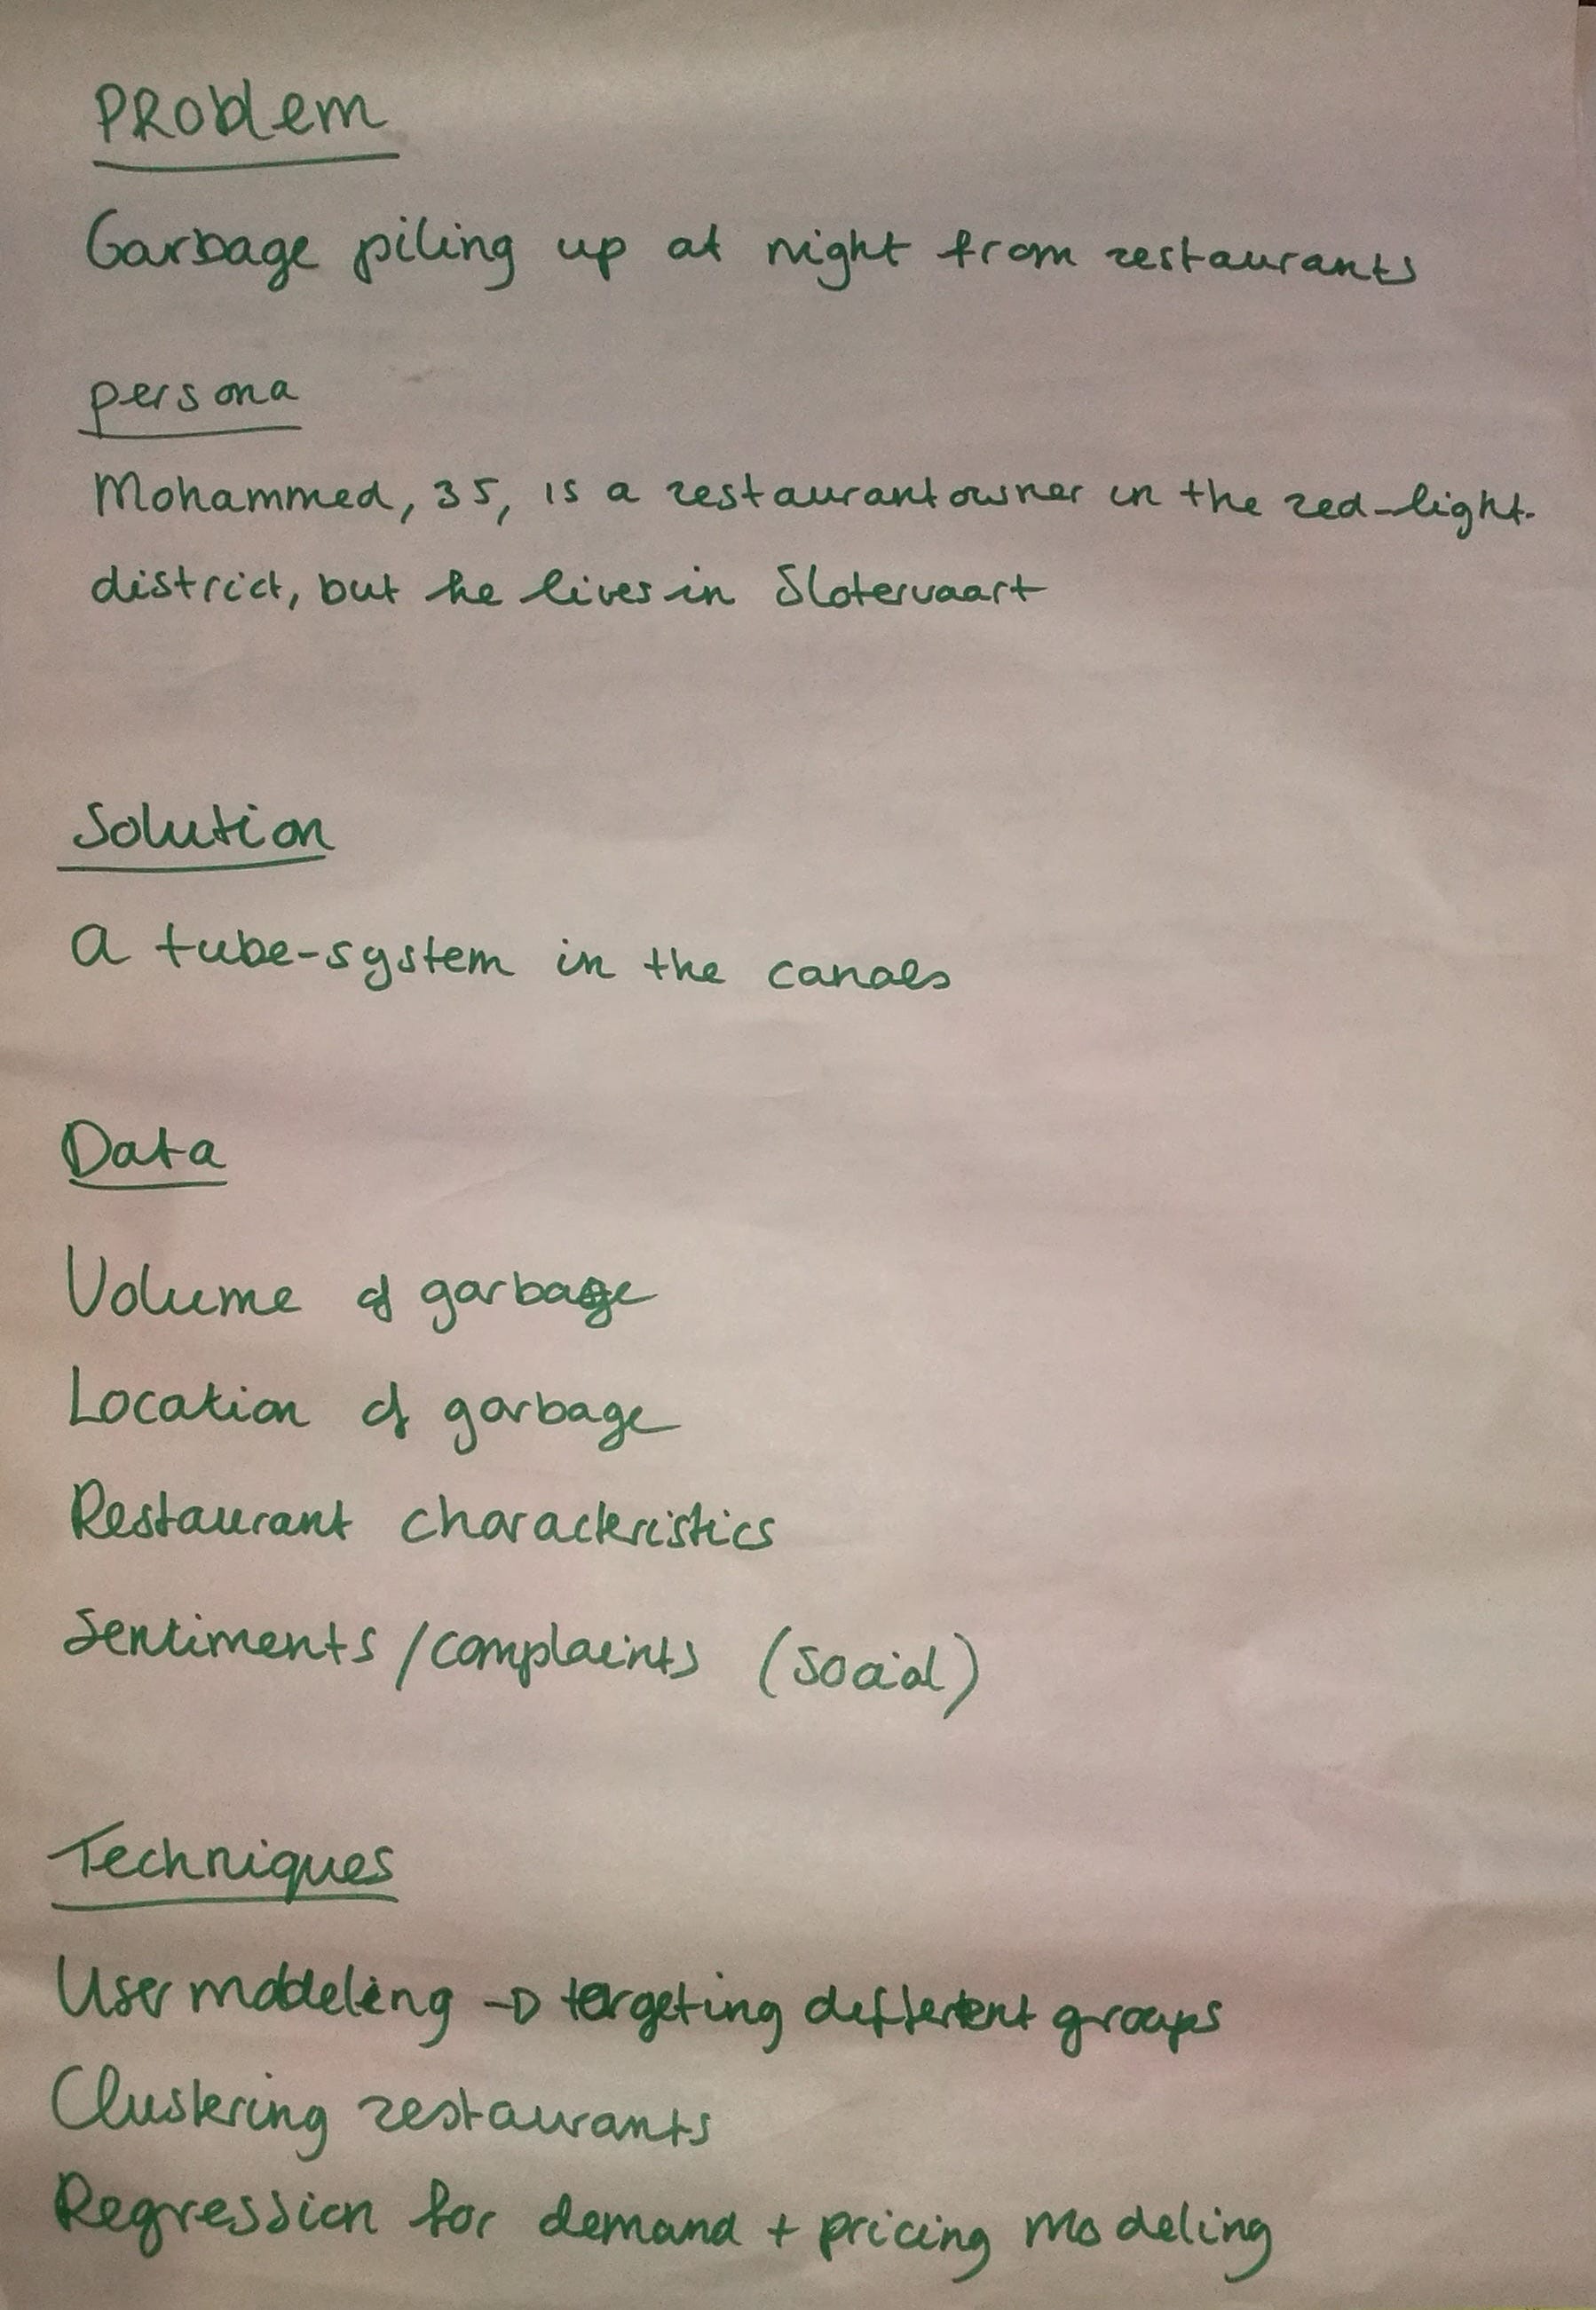 PRoblem
Garbage piling up at night from restaurants
persona
Mohammed, 35, is a restaurantowner in the red-light-
district, but he lives in Slotervaart
Solution
A tube-system in the canals
Data
Volume of garbage
Location of garbage
Restaurant characteristics
Sentiments/complaints (social)
Techniques
User modeling → targeting different groups
Clustering restaurants
Regression for demand + pricing modeling